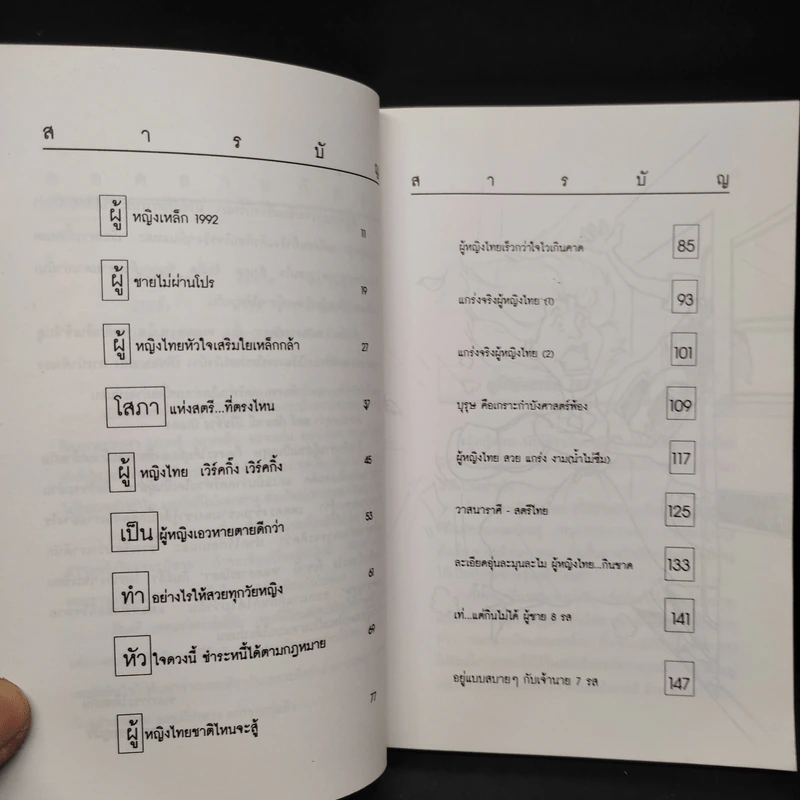 สารบัญ
ผู้หญิงเหล็ก 1992 11
ผู้ชายไม่ผ่านโปร 19
ผู้หญิงไทยหัวใจเสริมใยเหล็กกล้า 27
โสภาแห่งสตรี...ที่ตรงไหน 37
ผู้หญิงไทย เวิร์คกิ้ง เวิร์คกิ้ง 45
เป็นผู้หญิงเอวหายตายดีกว่า 53
ทำอย่างไรให้สวยทุกวัยหญิง 61
หัวใจดวงนี้ ชำระหนี้ได้ตามกฎหมาย 69
ผู้หญิงไทยชาติไหนจะสู้ 77
สารบัญ
ผู้หญิงไทยเร็วกว่าใจไวเกินคาด 85
แกร่งจริงผู้หญิงไทย (1) 93
แกร่งจริงผู้หญิงไทย (2) 101
บุรุษ คือเกราะกำบังศาสตร์พ้อง 109
ผู้หญิงไทย สวย แกร่ง งาม(น้ำไม่ซึม) 117
วาสนาราศี - สตรีไทย 125
ละเอียดอุ่นละมุนละไม ผู้หญิงไทย...กินขาด 133
เท่...แต่กินไม่ได้ ผู้ชาย 8 รส 141
อยู่แบบสบายๆ กับเจ้านาย 7 รส 147